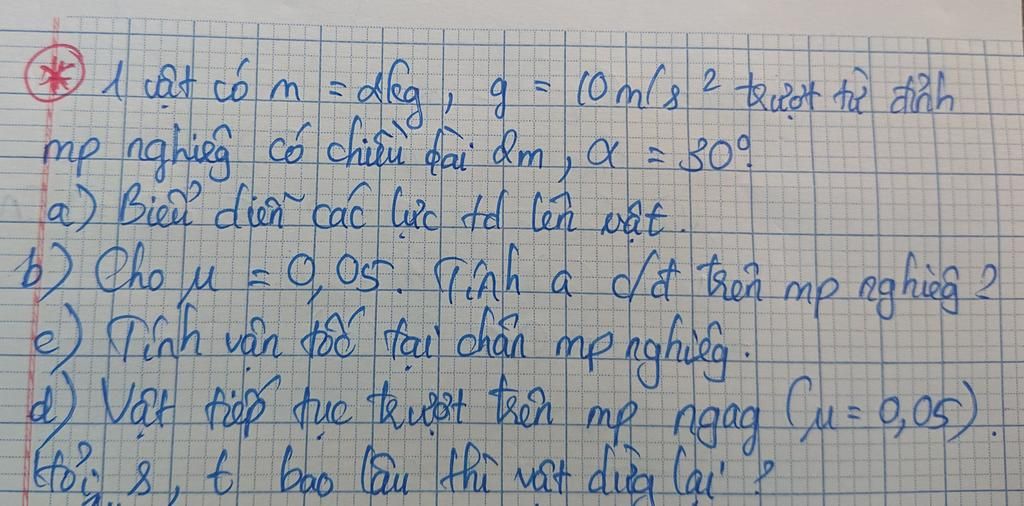 * 1 vật có m = 2kg, g = 10m/s² trượt từ đỉnh
mp nghiêg có chiều dài 2m, α = 30°
a) Biểu diễn các lực td lên vật.
b) Cho μ = 0,05. Tính a c/đ trên mp nghiêg?
c) Tính vận tốc tại chân mp nghiêg.
d) Vật tiếp tục trượt trên mp ngag (μ = 0,05).
Hỏi s, t bao lâu thì vật dừg lại?